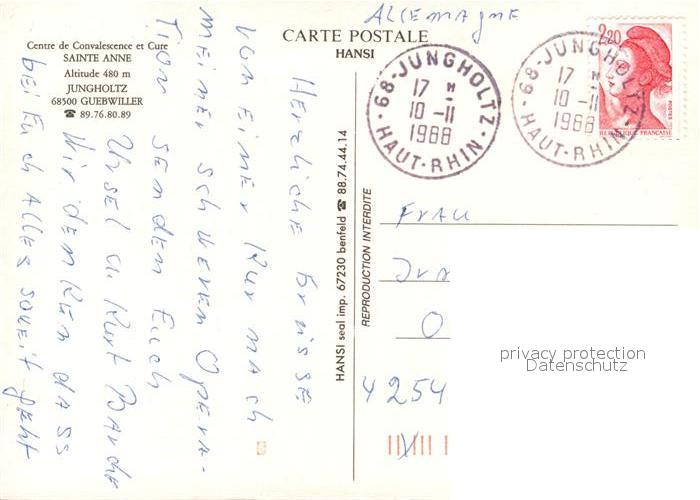 Allemagne
CARTE POSTALE
HANSI
Centre de Convalescence et Cure
SAINTE ANNE
Altitude 480 m
JUNGHOLTZ
68500 GUEBWILLER
☎ 89.76.80.89
68-JUNGHOLTZ
17 H
10-11
1988
HAUT-RHIN
68-JUNGHOLTZ
17 H
10-11
1988
HAUT-RHIN
2,20
REPUBLIQUE FRANCAISE
POSTES
Herzliche Grüsse
von einer Kur nach
meiner schweren Opera-
tion senden Euch
Ursel u. Kurt
Wir denken dass
bei Euch alles soweit geht
HANSI seal imp. 67230 benfeld ☎ 88.74.44.14
REPRODUCTION INTERDITE
Frau
O
4254
privacy protection
Datenschutz